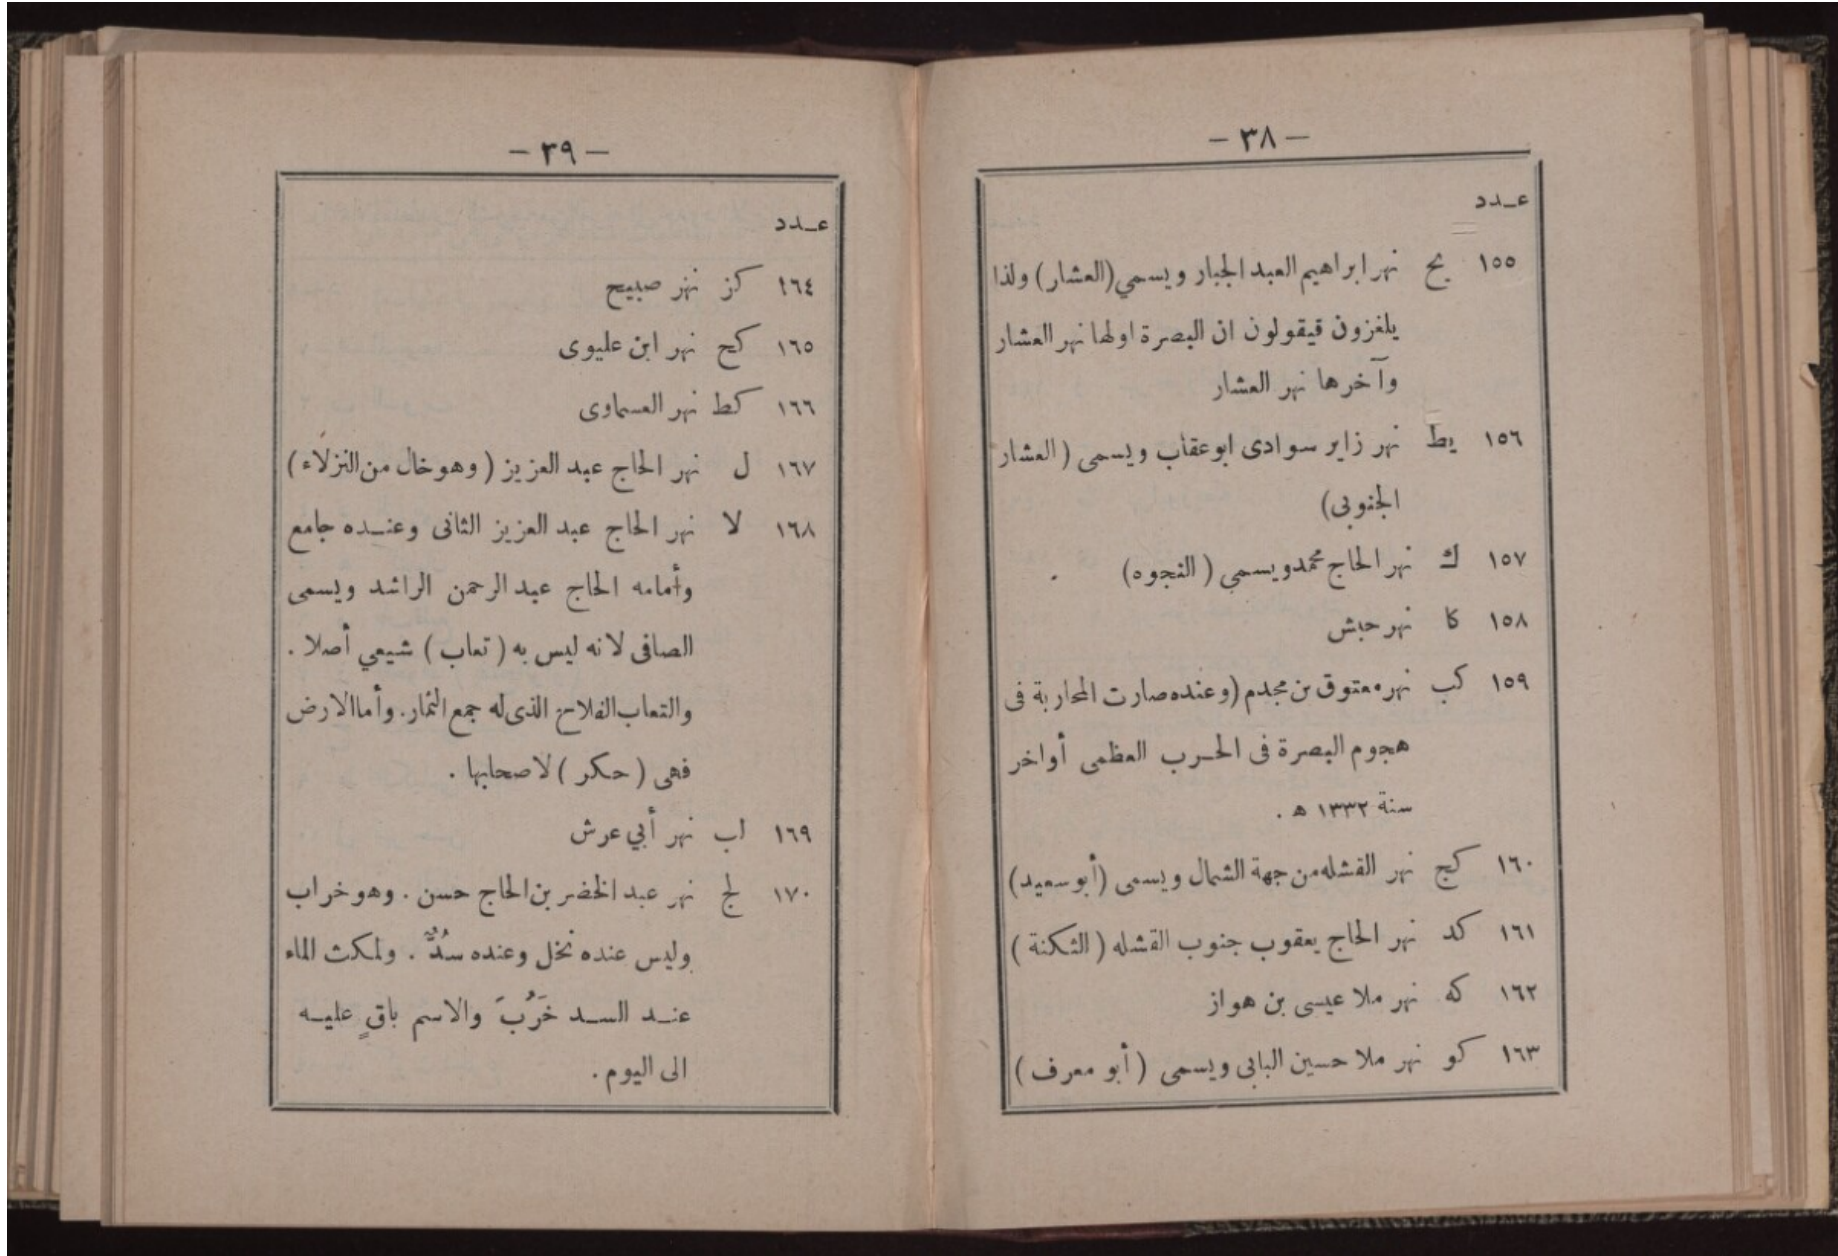 — ٣٨ —
عـدد
١٥٥ يح نهر ابراهيم العبد الجبار ويسمي (العشار) ولذا
يلغزون قيقولون ان البصرة اولها نهر العشار
وآخرها نهر العشار
١٥٦ يط نهر زاير سوادى ابو عقاب ويسمى (العشار
الجنوبى)
١٥٧ ك نهر الحاج محمد ويسمي (النجوه)
١٥٨ كا نهر حبش
١٥٩ كب نهر معتوق بن مجدم (وعنده صارت المحاربة فى
هجوم البصرة فى الحـرب العظمى أواخر
سنة ١٣٣٢ هـ .
١٦٠ كج نهر القشله من جهة الشمال ويسمى (أبو سعيد)
١٦١ كد نهر الحاج يعقوب جنوب القشله (الثكنة)
١٦٢ كه نهر ملا عيسى بن هواز
١٦٣ كو نهر ملا حسين البابى ويسمى (أبو معرف)
— ٣٩ —
عـدد
١٦٤ كز نهر صبيح
١٦٥ كح نهر ابن عليوى
١٦٦ كط نهر العسماوى
١٦٧ ل نهر الحاج عبد العزيز (وهو خال من النزلاء)
١٦٨ لا نهر الحاج عبد العزيز الثانى وعنـده جامع
وأمامه الحاج عبد الرحمن الراشد ويسمى
الصافى لانه ليس به (تعاب) شيعي أصلا .
والتعاب الفلاح الذى له جمع الثمار . وأما الارض
فهى (حكر) لاصحابها .
١٦٩ لب نهر أبي عرش
١٧٠ لج نهر عبد الخضر بن الحاج حسن . وهو خراب
وليس عنده نخل وعنده سُدٌّ . ولمكث الماء
عنـد السـد خَرُبَ والاسم باقٍ عليـه
الى اليوم .